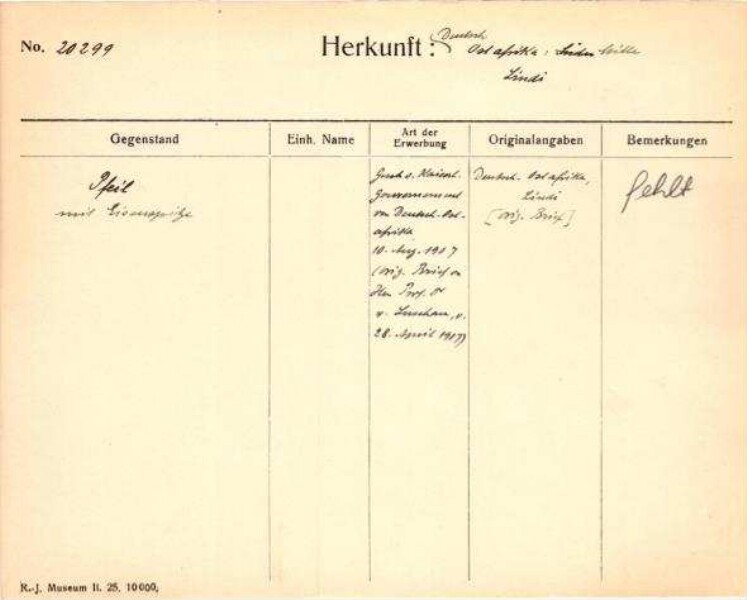 No. 20299
Herkunft: Deutsch
Ostafrika:
Lindi
Gegenstand
Einh. Name
Art der
Erwerbung
Originalangaben
Bemerkungen
Pfeil
mit Eisenspitze
Gesch. v. Kaiserl.
Gouvernement
von Deutsch-Ost-
afrika
10. Aug. 1907
(orig. Brief v.
Herr Prof. Dr
v. Luschan, v.
28. April 1907)
Deutsch-Ostafrika,
Lindi
[orig. Brief]
fehlt
R.-J. Museum II. 25. 10000.